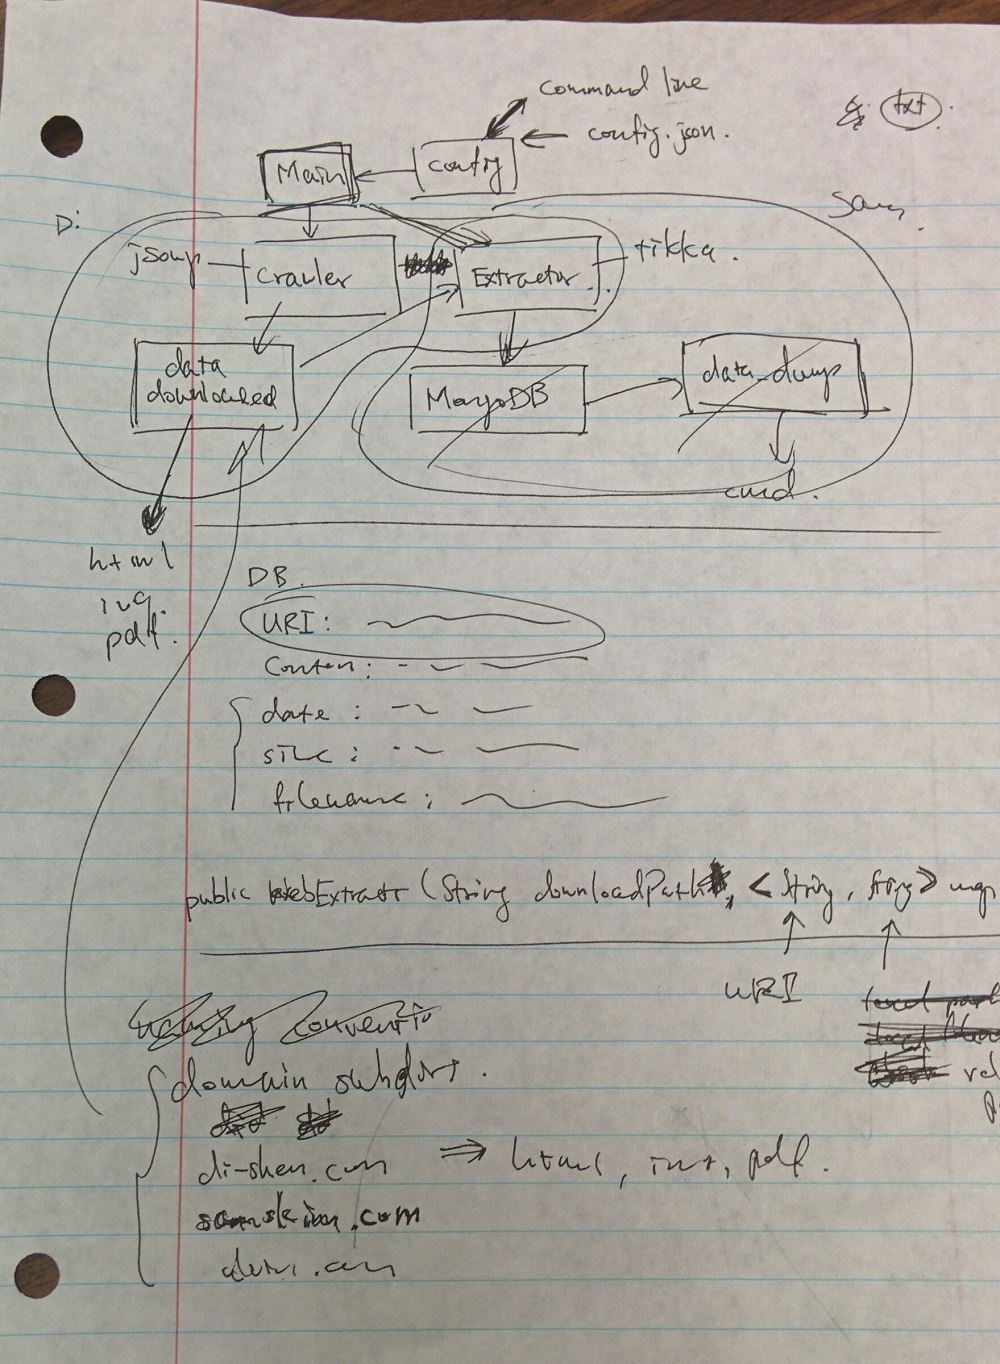 command line
config.json.
txt
Main
config
Di
Sam
jsoup
crawler
Extractor
tikka.
data
downloaded
MongoDB
data_dump
cmd.
html
img.
pdf.
DB.
URI:
Conten:
date:
size:
filename:
public WebExtractr (String downloadPath, <String, String> map
URI
naming conventio
domain subdirs.
di-shen.com ⇒ html, img, pdf.
.com